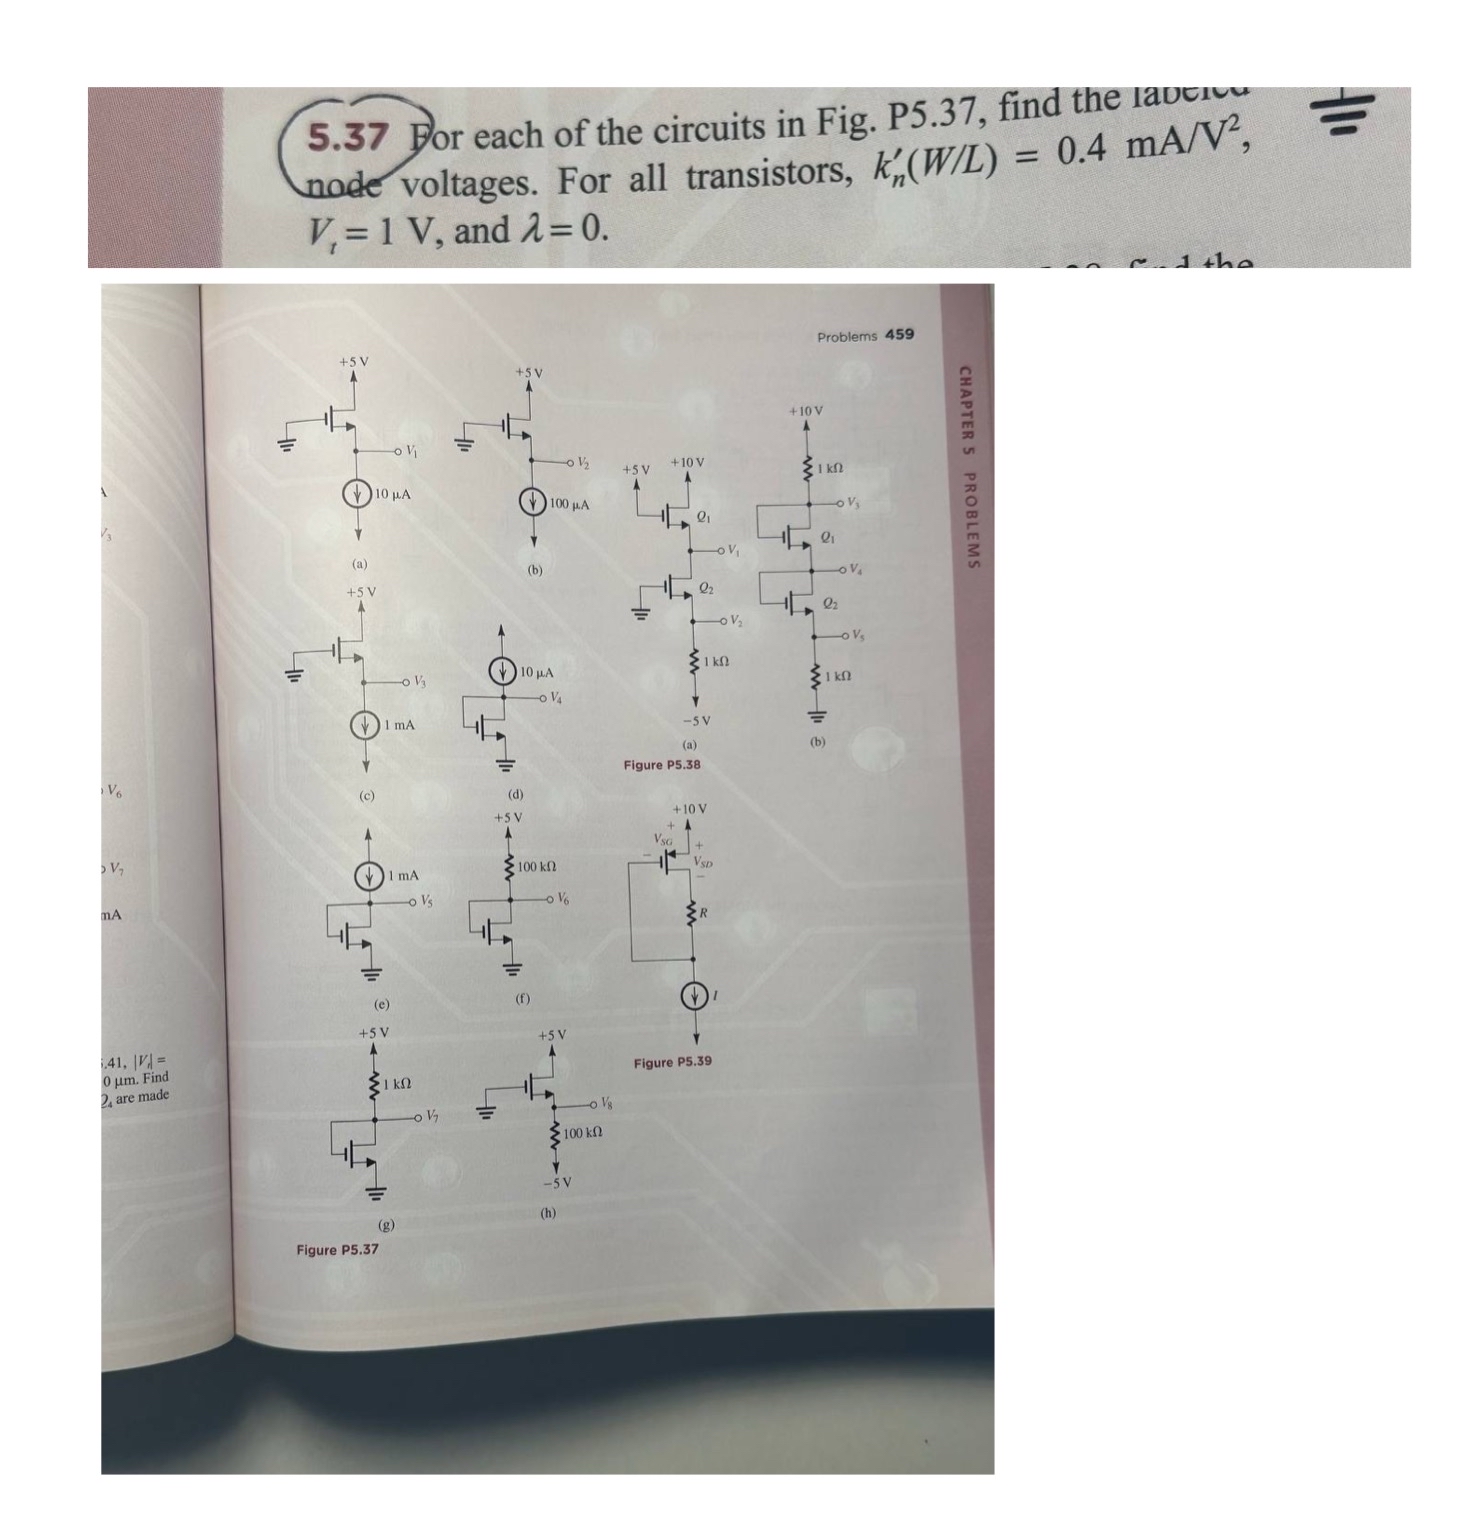 5.37 For each of the circuits in Fig. P5.37, find the labeled
node voltages. For all transistors, k′n(W/L) = 0.4 mA/V²,
Vt = 1 V, and λ = 0.
find the
Problems 459
CHAPTER 5 PROBLEMS
+5 V
V1
10 μA
(a)
+5 V
V2
100 μA
(b)
+5 V
V3
1 mA
(c)
10 μA
V4
(d)
1 mA
V5
(e)
+5 V
100 kΩ
V6
(f)
+5 V
1 kΩ
V7
(g)
+5 V
V8
100 kΩ
−5 V
(h)
Figure P5.37
+5 V
+10 V
Q1
V1
Q2
V2
1 kΩ
−5 V
(a)
+10 V
1 kΩ
V3
Q1
V4
Q2
V5
1 kΩ
(b)
Figure P5.38
+10 V
+
VSG
−
+
VSD
−
R
I
Figure P5.39
V3
V6
V7
mA
.41, |Vt| =
0 μm. Find
are made